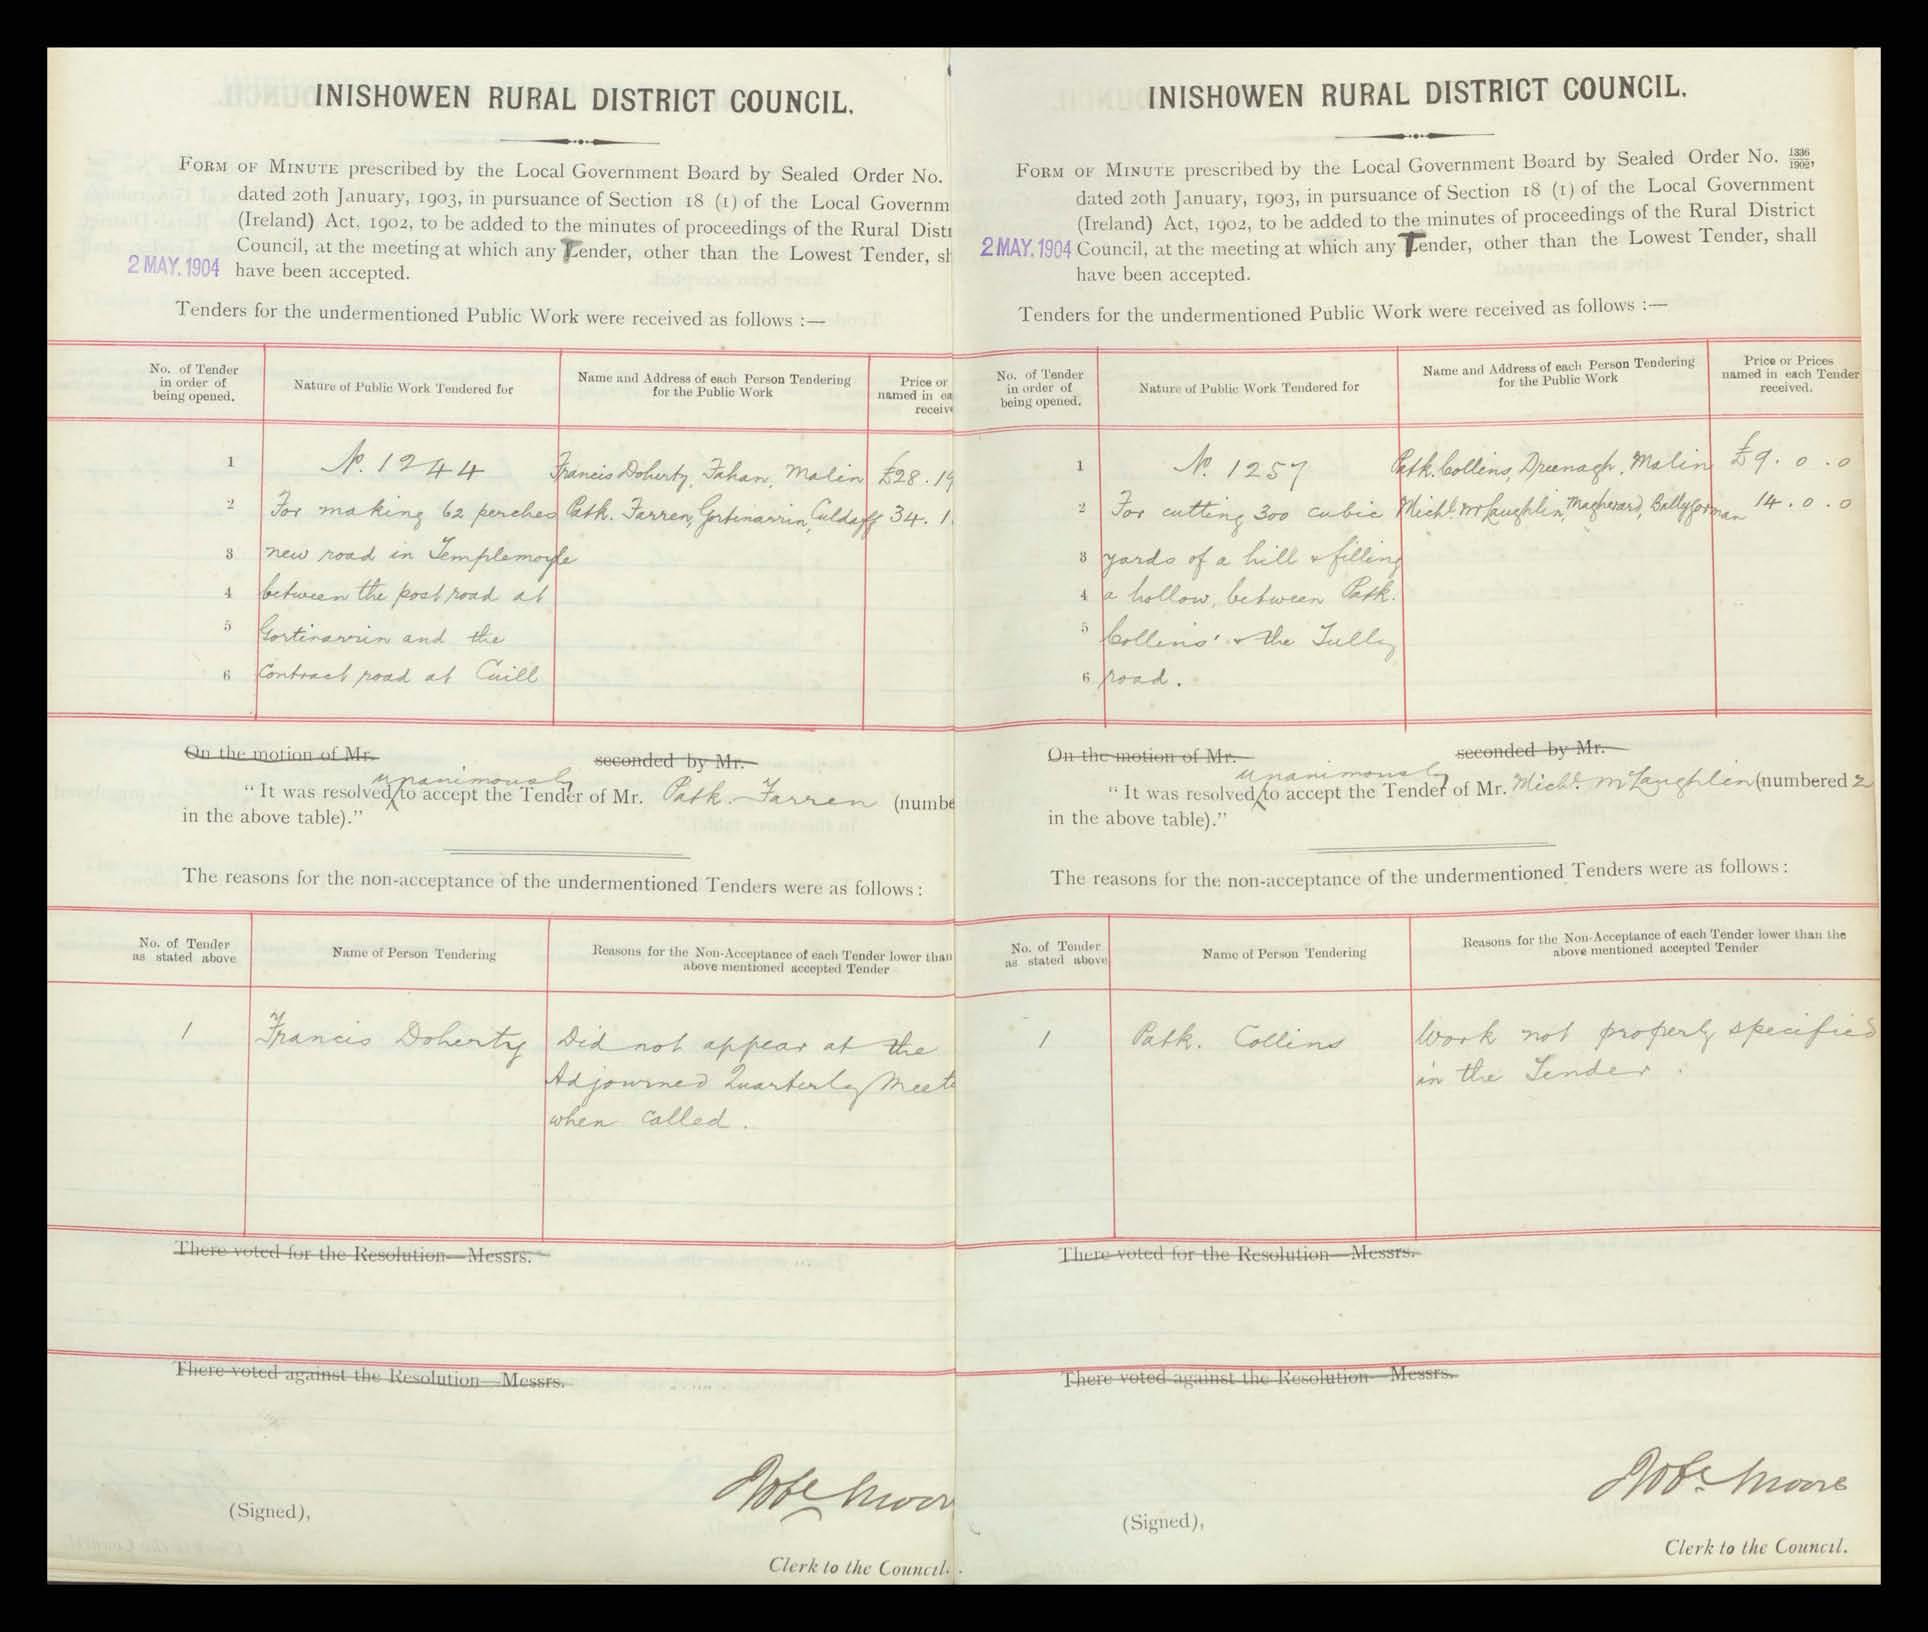 INISHOWEN RURAL DISTRICT COUNCIL.
FORM OF MINUTE prescribed by the Local Government Board by Sealed Order No.
dated 20th January, 1903, in pursuance of Section 18 (1) of the Local Governm
(Ireland) Act, 1902, to be added to the minutes of proceedings of the Rural Distr
Council, at the meeting at which any Tender, other than the Lowest Tender, sh
2 MAY. 1904 have been accepted.
Tenders for the undermentioned Public Work were received as follows :—
No. of Tender in order of being opened.
Nature of Public Work Tendered for
Name and Address of each Person Tendering for the Public Work
Price or
named in ea
receive
1 No. 1244 Francis Doherty, Fahan, Malin £28 . 19
2 For making 62 perches Patk. Farren, Gortinarrin, Culdaff 34 . 1
3 new road in Templemoyle
4 between the post road at
5 Gortinarrin and the
6 contract road at Cuill
On the motion of Mr. seconded by Mr.
unanimously
"It was resolved to accept the Tender of Mr. Patk. Farren (numbe
in the above table)."
The reasons for the non-acceptance of the undermentioned Tenders were as follows :
No. of Tender as stated above
Name of Person Tendering
Reasons for the Non-Acceptance of each Tender lower than
above mentioned accepted Tender
1 Francis Doherty Did not appear at the
Adjourned Quarterly Meet
when called.
There voted for the Resolution—Messrs.
There voted against the Resolution—Messrs.
Robt Moor
(Signed),
Clerk to the Council.
INISHOWEN RURAL DISTRICT COUNCIL.
FORM OF MINUTE prescribed by the Local Government Board by Sealed Order No. 1336/1902,
dated 20th January, 1903, in pursuance of Section 18 (1) of the Local Government
(Ireland) Act, 1902, to be added to the minutes of proceedings of the Rural District
2 MAY. 1904 Council, at the meeting at which any Tender, other than the Lowest Tender, shall
have been accepted.
Tenders for the undermentioned Public Work were received as follows :—
No. of Tender in order of being opened.
Nature of Public Work Tendered for
Name and Address of each Person Tendering for the Public Work
Price or Prices named in each Tender received.
1 No. 1257 Patk. Collins, Dreenagh, Malin £9 . 0 . 0
2 For cutting 300 cubic Michl. McLaughlin, Magherard, Ballygorman 14 . 0 . 0
3 yards of a hill & filling
4 a hollow, between Patk.
5 Collins' & the Tully
6 road.
On the motion of Mr. seconded by Mr.
unanimously
"It was resolved to accept the Tender of Mr. Michl. McLaughlin (numbered 2
in the above table)."
The reasons for the non-acceptance of the undermentioned Tenders were as follows :
No. of Tender as stated above
Name of Person Tendering
Reasons for the Non-Acceptance of each Tender lower than the
above mentioned accepted Tender
1 Patk. Collins Work not properly specified
in the Tender.
There voted for the Resolution—Messrs.
There voted against the Resolution—Messrs.
Robt Moore
(Signed),
Clerk to the Council.